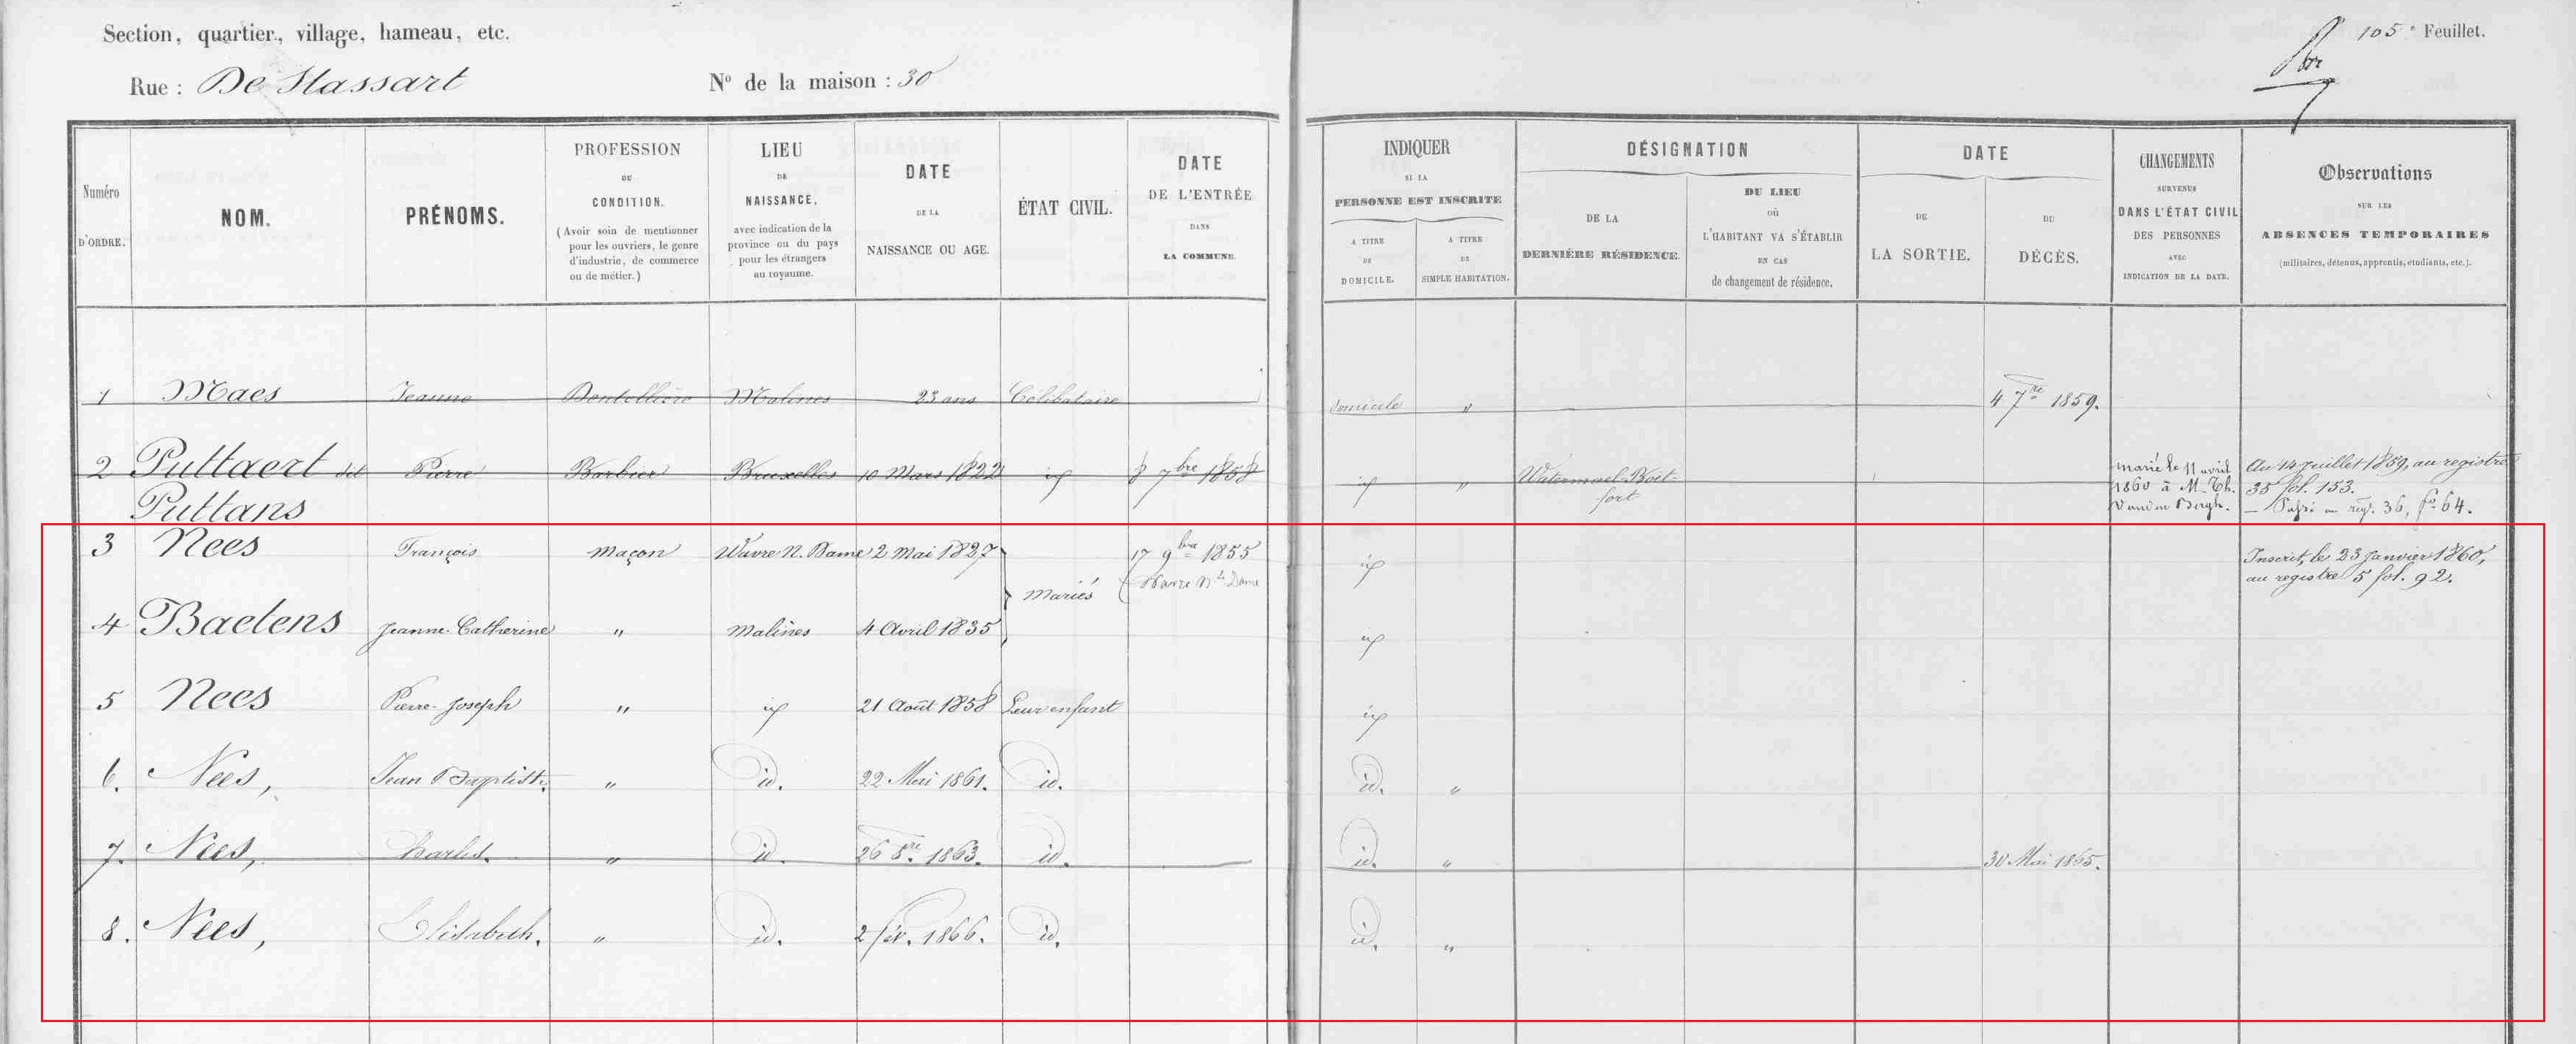 Section, quartier, village, hameau, etc.
105e Feuillet.
Rue : De Stassart
No de la maison : 30
Numéro D'ORDRE.
NOM.
PRÉNOMS.
PROFESSION OU CONDITION. (Avoir soin de mentionner pour les ouvriers, le genre d'industrie, de commerce ou de métier.)
LIEU DE NAISSANCE, avec indication de la province ou du pays pour les étrangers au royaume.
DATE DE LA NAISSANCE OU AGE.
ÉTAT CIVIL.
DATE DE L'ENTRÉE DANS LA COMMUNE.
INDIQUER SI LA PERSONNE EST INSCRITE
A TITRE DE DOMICILE.
A TITRE DE SIMPLE HABITATION.
DÉSIGNATION
DE LA DERNIÈRE RÉSIDENCE.
DU LIEU où L'HABITANT VA S'ÉTABLIR EN CAS de changement de résidence.
DATE
DE LA SORTIE.
DU DÉCÈS.
CHANGEMENTS SURVENUS DANS L'ÉTAT CIVIL DES PERSONNES AVEC INDICATION DE LA DATE.
Observations SUR LES ABSENCES TEMPORAIRES (militaires, détenus, apprentis, étudiants, etc.).
1 Maes Jeanne Dentellière Malines 23 ans Célibataire domicile " 4 7re 1859.
2 Puttaert dit Pierre Barbier Bruxelles 10 Mars 1822 id 8 7bre 1858 id " Watermael-Boit- marié le 11 avril Au 14 Juillet 1859, au registre
Puttans fort 1860 à M. Th. 35 fol. 153.
Vanden Bergh. — Passé au reg. 36, fo 64.
3 Nees François maçon Wavre N. Dame 2 Mai 1827 17 9bre 1855 id Inscrit, le 23 Janvier 1860,
mariés Wavre Ne Dame au registre 5 fol. 92.
4 Baetens Jeanne-Catherine " malines 4 Avril 1835 id
5 Nees Pierre-Joseph " id 21 Août 1858 Leur enfant id
6. Nees, Jean Baptiste. " id. 22 Mai 1861. id. id. "
7. Nees, Charles. " id. 26 8re 1863. id. id. " 30 Mai 1865.
8. Nees, Elisabeth. " id. 2 fév. 1866. id. id. "